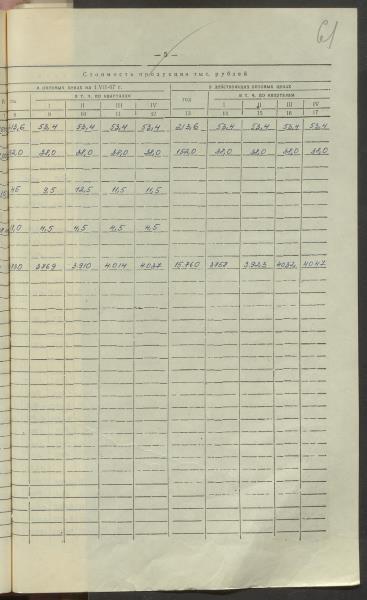 61
— 5 —
Стоимость продукции тыс. рублей
в оптовых ценах на 1.VII-67 г. в действующих оптовых ценах
в т. ч. по кварталам год в т. ч. по кварталам
I II III IV I II III IV
8 9 10 11 12 13 14 15 16 17
213,6 53,4 53,4 53,4 53,4 213,6 53,4 53,4 53,4 53,4
2,0 38,0 38,0 38,0 38,0 152,0 38,0 38,0 38,0 38,0
45 9,5 12,5 11,5 11,5
4,5 4,5 4,5 4,5
3769 3.910 4.014 4.037 15.760 3758 3.923 4032 4047